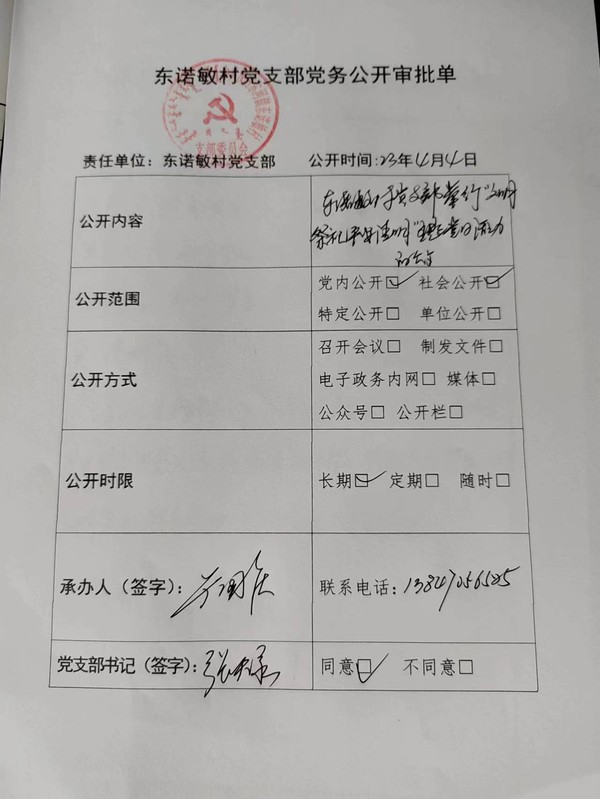 东诺敏村党支部党务公开审批单
支部委员会
责任单位：东诺敏村党支部 公开时间：23年4月4日
公开内容
东诺敏村党支部举行“文明
祭祀 平安清明”主题党日活动
公开范围
党内公开☑ 社会公开☑
特定公开□ 单位公开□
公开方式
召开会议□ 制发文件□
电子政务内网□ 媒体□
公众号□ 公开栏□
公开时限
长期☑ 定期□ 随时□
承办人（签字）：
联系电话：
党支部书记（签字）：
同意☑ 不同意□